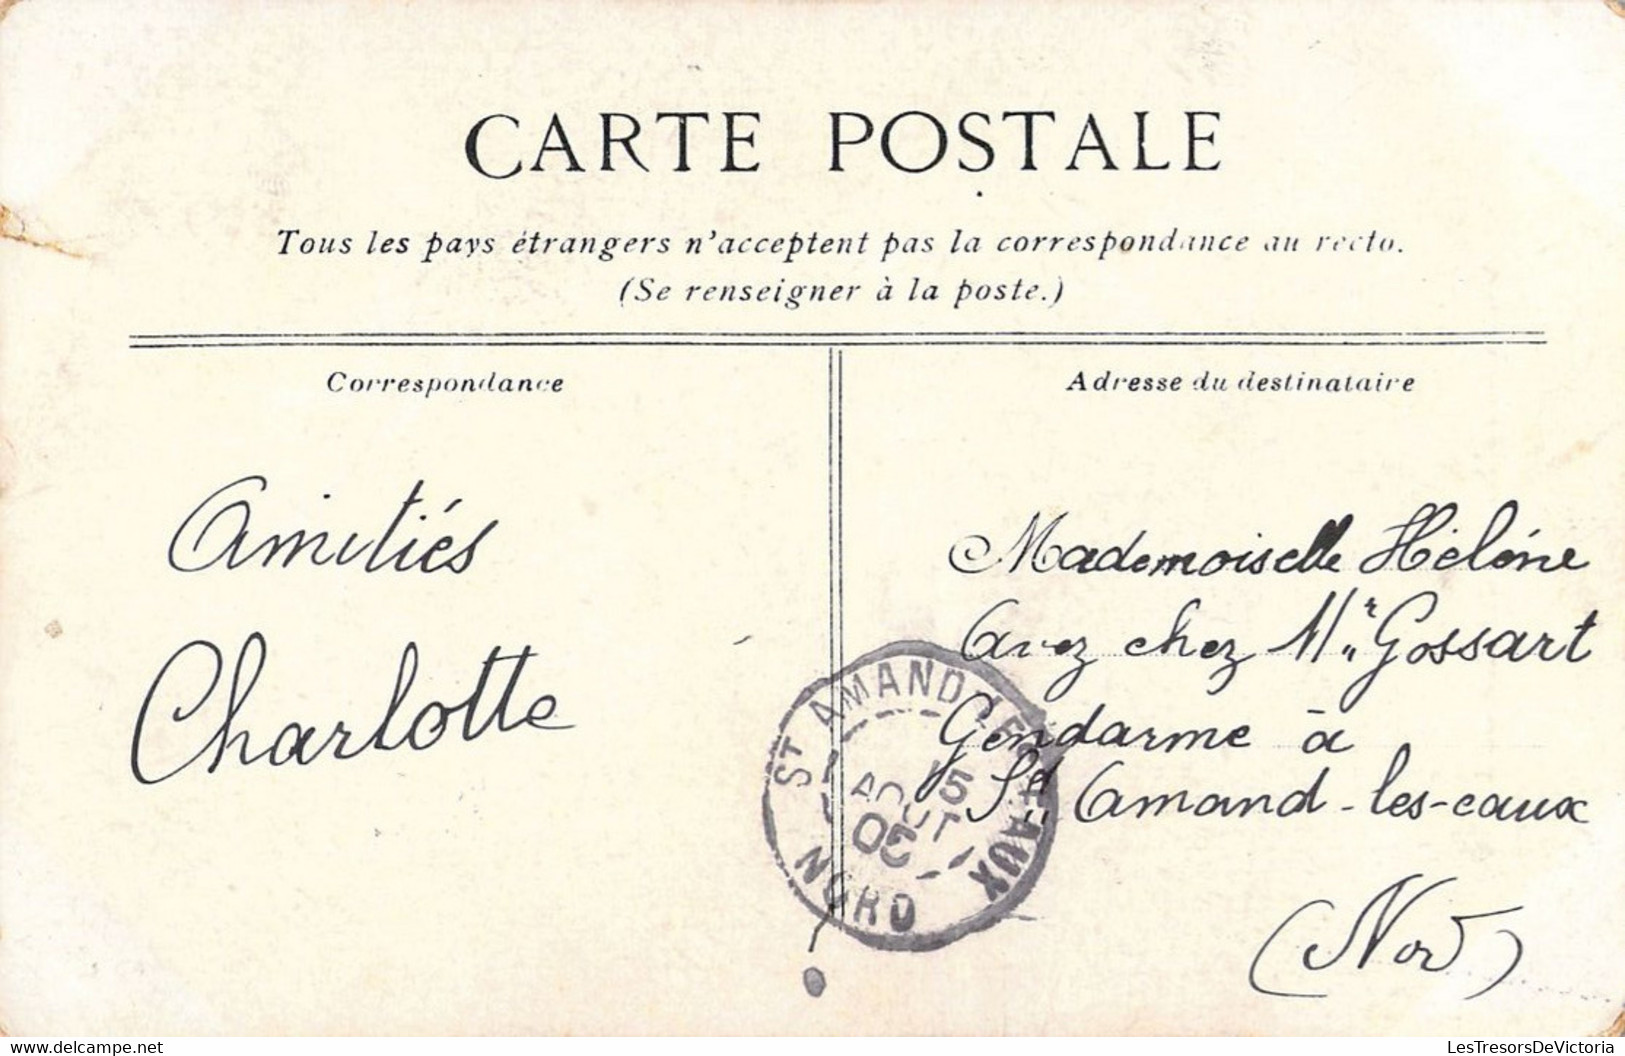 CARTE POSTALE
Tous les pays étrangers n'acceptent pas la correspondance au recto.
(Se renseigner à la poste.)
Correspondance
Adresse du destinataire
Amitiés
Charlotte
Mademoiselle Hélène
Avez chez Mr Gossart
Gendarme à
St Amand-les-eaux
(Nord)
ST AMAND LES EAUX
15
AOUT
NORD
delcampe.net
LesTresorsDeVictoria